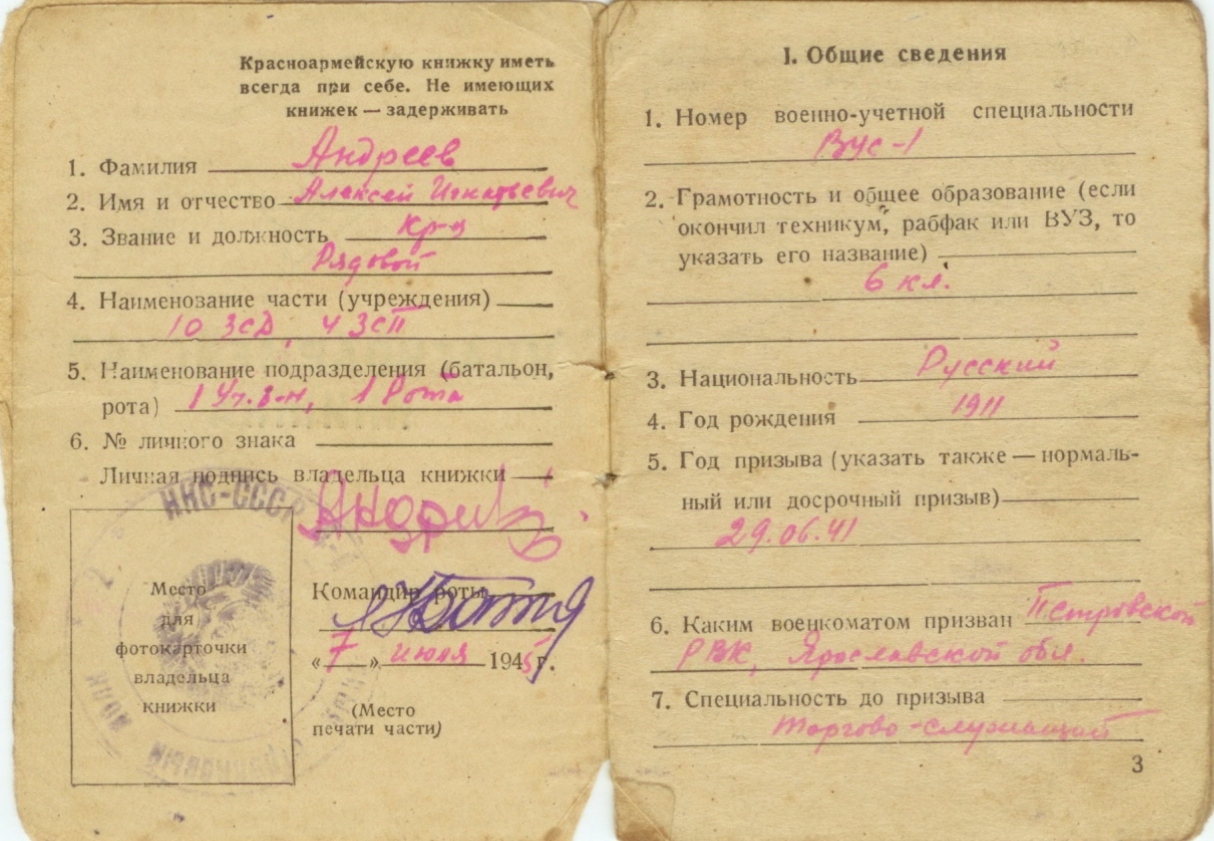 Красноармейскую книжку иметь
всегда при себе. Не имеющих
книжек — задерживать
1. Фамилия Андреев
2. Имя и отчество Алексей Игнатьевич
3. Звание и должность кр-ц
Рядовой
4. Наименование части (учреждения)
10 ЗСД, 4 ЗСП
5. Наименование подразделения (батальон,
рота) 1 Уч. б-н, 1 Рота
6. № личного знака
Личная подпись владельца книжки
НКС-СССР
Место
для
фотокарточки
владельца
книжки
Командир роты
«7» июня 1945 г.
(Место
печати части)
I. Общие сведения
1. Номер военно-учетной специальности
ВУС-1
2. Грамотность и общее образование (если
окончил техникум, рабфак или ВУЗ, то
указать его название)
6 кл.
3. Национальность Русский
4. Год рождения 1911
5. Год призыва (указать также — нормаль-
ный или досрочный призыв)
29.06.41
6. Каким военкоматом призван Петровской
РВК, Ярославской обл.
7. Специальность до призыва
торгово-служащий
3